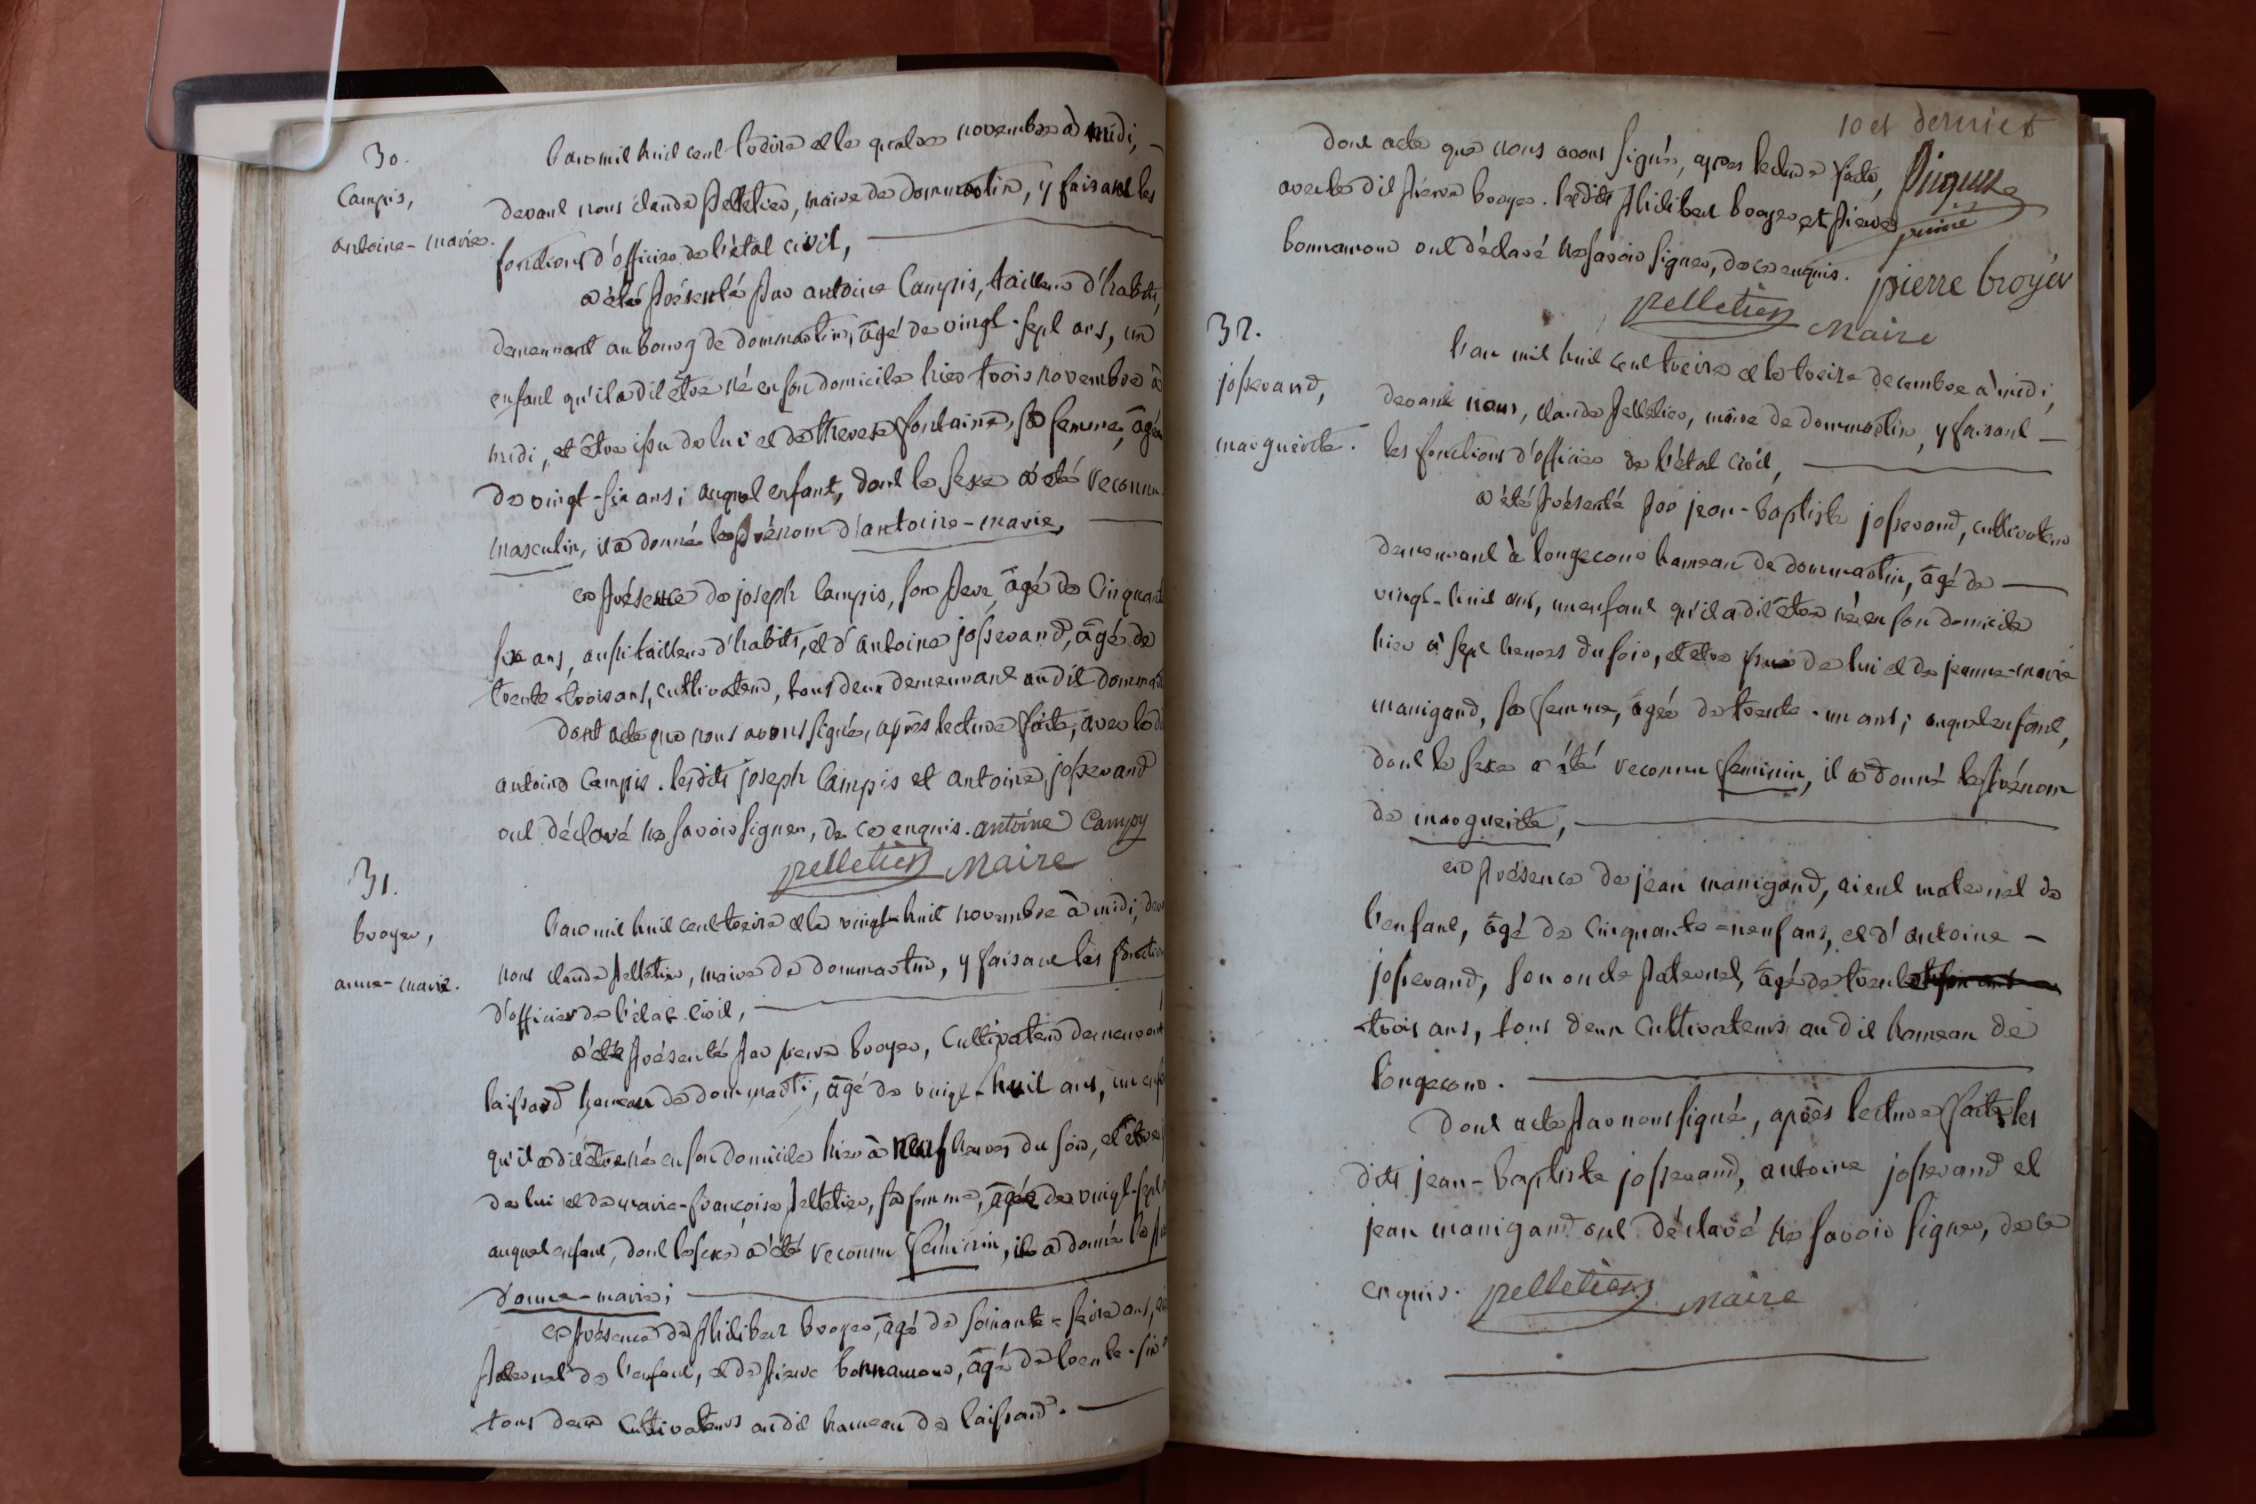 30.
Campis,
antoine-marie.
l'an mil huit cent treize et le quatre novembre à midi,
devant nous claude pelletier, maire de dommartin, y faisant les
fonctions d'officier de l'état civil,
a été présenté par antoine Campis, tailleur d'habits,
demeurant au bourg de dommartin, âgé de vingt-sept ans, un
enfant qu'il a dit être né en son domicile hier trois novembre à
midi, et être issu de lui et de therese fontaine, sa femme, âgée
de vingt-six ans; auquel enfant, dont le sexe a été reconnu
masculin, il a donné le prénom d'antoine-marie,
en présence de joseph Campis, son pere, âgé de Cinquante
six ans, aussi tailleur d'habits, et d'antoine josserand, âgé de
trente-trois ans, cultivateur, tous deux demeurant au dit dommartin
dont acte que nous avons signé, après lecture faite, avec le dit
antoine Campis. lesdits joseph Campis et antoine josserand
ont déclaré ne savoir signer, de ce enquis. antoine Campy
pelletier Maire
31.
broyer,
anne-marie.
l'an mil huit cent treize et le vingt-huit novembre à midi, devant
nous claude pelletier, maire de dommartin, y faisant les fonctions
d'officier de l'état civil,
a été présenté par pierre broyer, Cultivateur demeurant
laissard hameau de dommarti, âgé de vingt-huit ans, un enfant
qu'il a dit être né en son domicile hier à neuf heures du soir, et être
de lui et de marie-françoise pelletier, sa femme, âgée de vingt-sept
auquel enfant, dont le sexe a été reconnu féminin, il a donné le
d'anne-marie;
en présence de philibert broyer, âgé de soixante-seize ans,
paternel de l'enfant, et de pierre bonnamour, âgé de trente-six
tous deux Cultivateurs au dit hameau de laissard.
10 et dernier
dont acte que nous avons signé, après lecture faite,
avec le dit pierre broyer. lesdits philibert broyer et pierre
bonnamour ont déclaré ne savoir signer, de ce enquis. pierre broyer
pelletier Maire
32.
josserand,
marguerite.
l'an mil huit cent treize et le treize decembre à midi,
devant nous, claude pelletier, maire de dommartin, y faisant
les fonctions d'officier de l'état civil,
a été présenté par jean-baptiste josserand, cultivateur
demeurant à longecour hameau de dommartin, âgé de
vingt-huit ans, un enfant qu'il a dit être né en son domicile
hier à sept heures du soir, et être issu de lui et de jeanne-marie
manigand, sa femme, âgée de trente-un ans; auquel enfant,
dont le sexe a été reconnu feminin, il a donné le prénom
de marguerite,
en présence de jean manigand, aieul maternel de
l'enfant, âgé de Cinquante-neuf ans, et d'antoine
josserand, son oncle paternel, âgé de trente
trois ans, tous deux Cultivateurs au dit hameau de
longecour.
dont acte par nous signé, après lecture faite, les
dits jean-baptiste josserand, antoine josserand et
jean manigand ont déclaré ne savoir signer, de ce
enquis. pelletier Maire